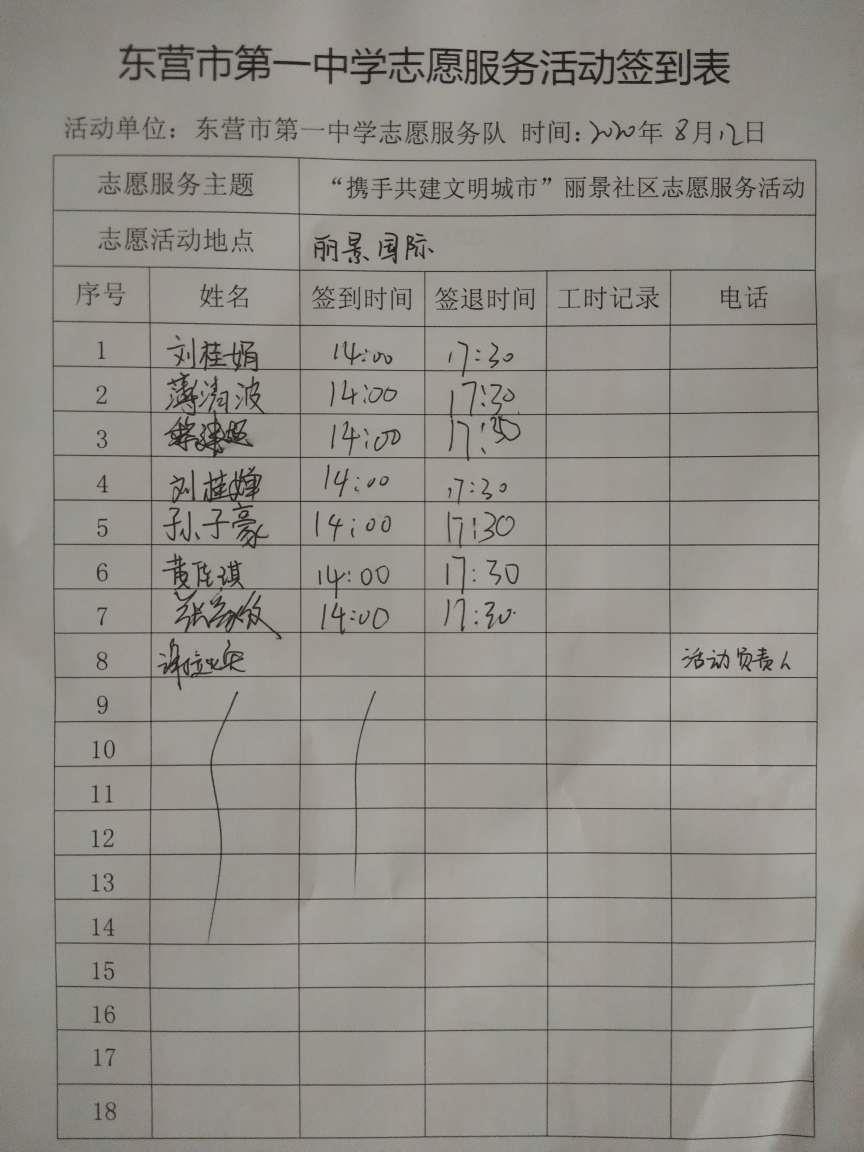 东营市第一中学志愿服务活动签到表
活动单位：东营市第一中学志愿服务队 时间：2020年8月12日
志愿服务主题 “携手共建文明城市”丽景社区志愿服务活动
志愿活动地点 丽景国际
序号 姓名 签到时间 签退时间 工时记录 电话
1 刘桂娟 14:00 17:30
2 薄清波 14:00 17:30
3 14:00 17:30
4 刘桂婵 14:00 17:30
5 孙子豪 14:00 17:30
6 黄佳琪 14:00 17:30
7 14:00 17:30
8 活动负责人
9
10
11
12
13
14
15
16
17
18